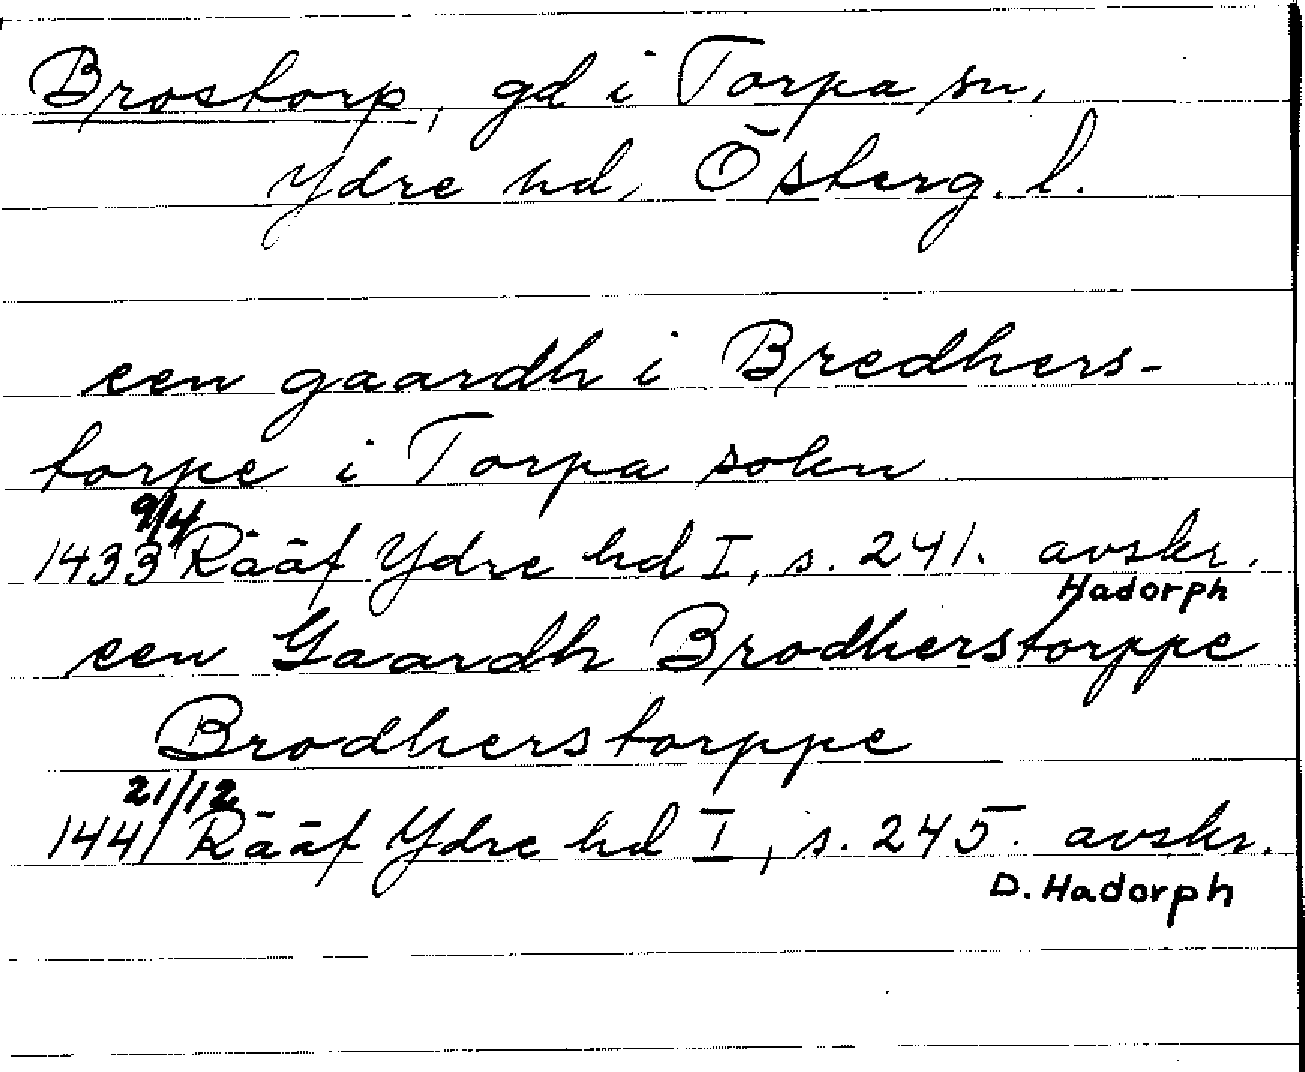 Brostorp, gd i Torpa sn,
Ydre hd, Österg. l.
een gaardh i Bredhers-
torpe i Torpa sokn
1433 9/4 Rääf Ydre hd I, s. 241. avskr.
Hadorph
een Gaardh Brodherstorppe
Brodherstorppe
1441 21/12 Rääf Ydre hd I, s. 245. avskr.
D. Hadorph